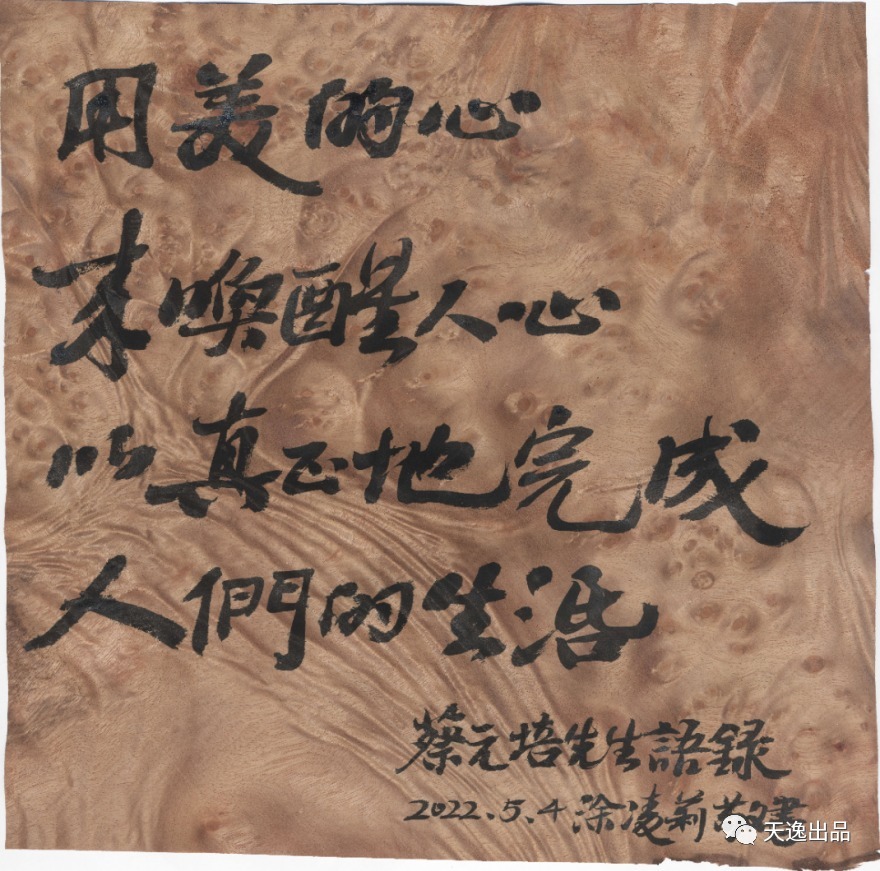 用美的心
来喚醒人心
以真正地完成
人們的生活
蔡元培先生語録
2022.5.4 涂凌莉 書
天逸出品